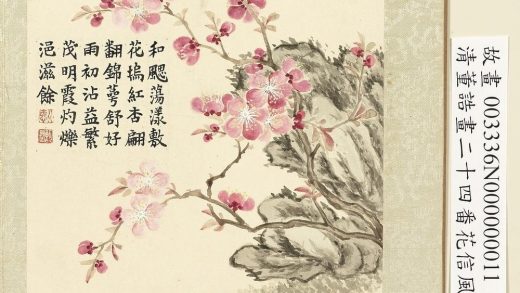 和颸蕩漾敷
花塢紅杏翩
翻錦萼舒好
雨初沾益繁
茂明霞灼爍
浥滋餘
故畫 003336N000000011
清董誥畫二十四番花信風